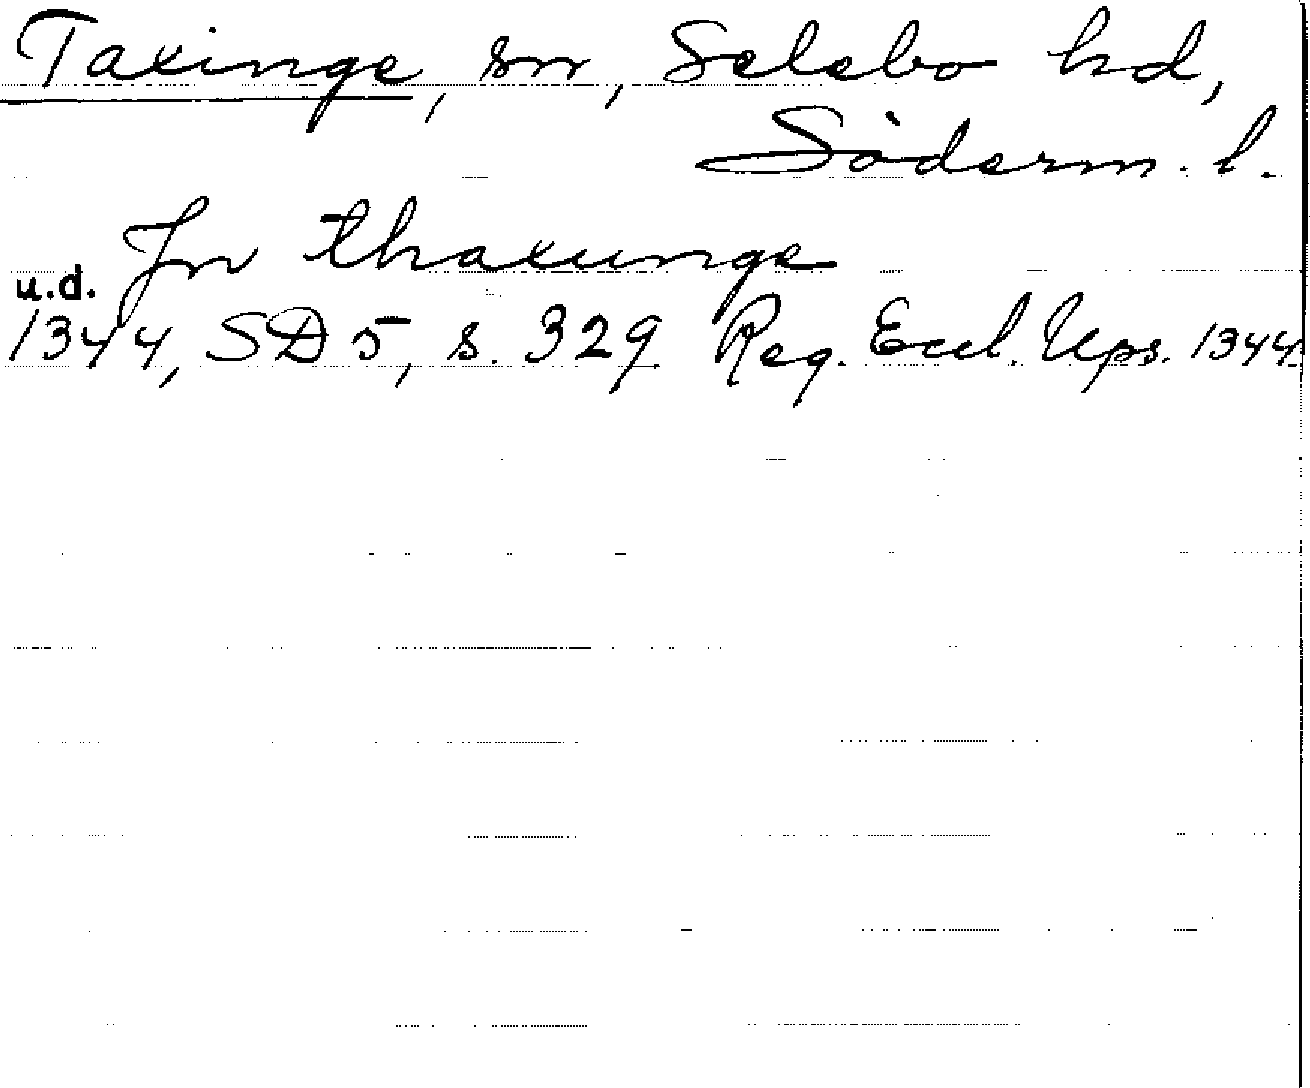 Taxinge, sn, Selebo hd,
Söderm. l.
u.d. Jn thaxunge
1344, SD 5, s. 329 Reg. Eccl. Ups. 1344